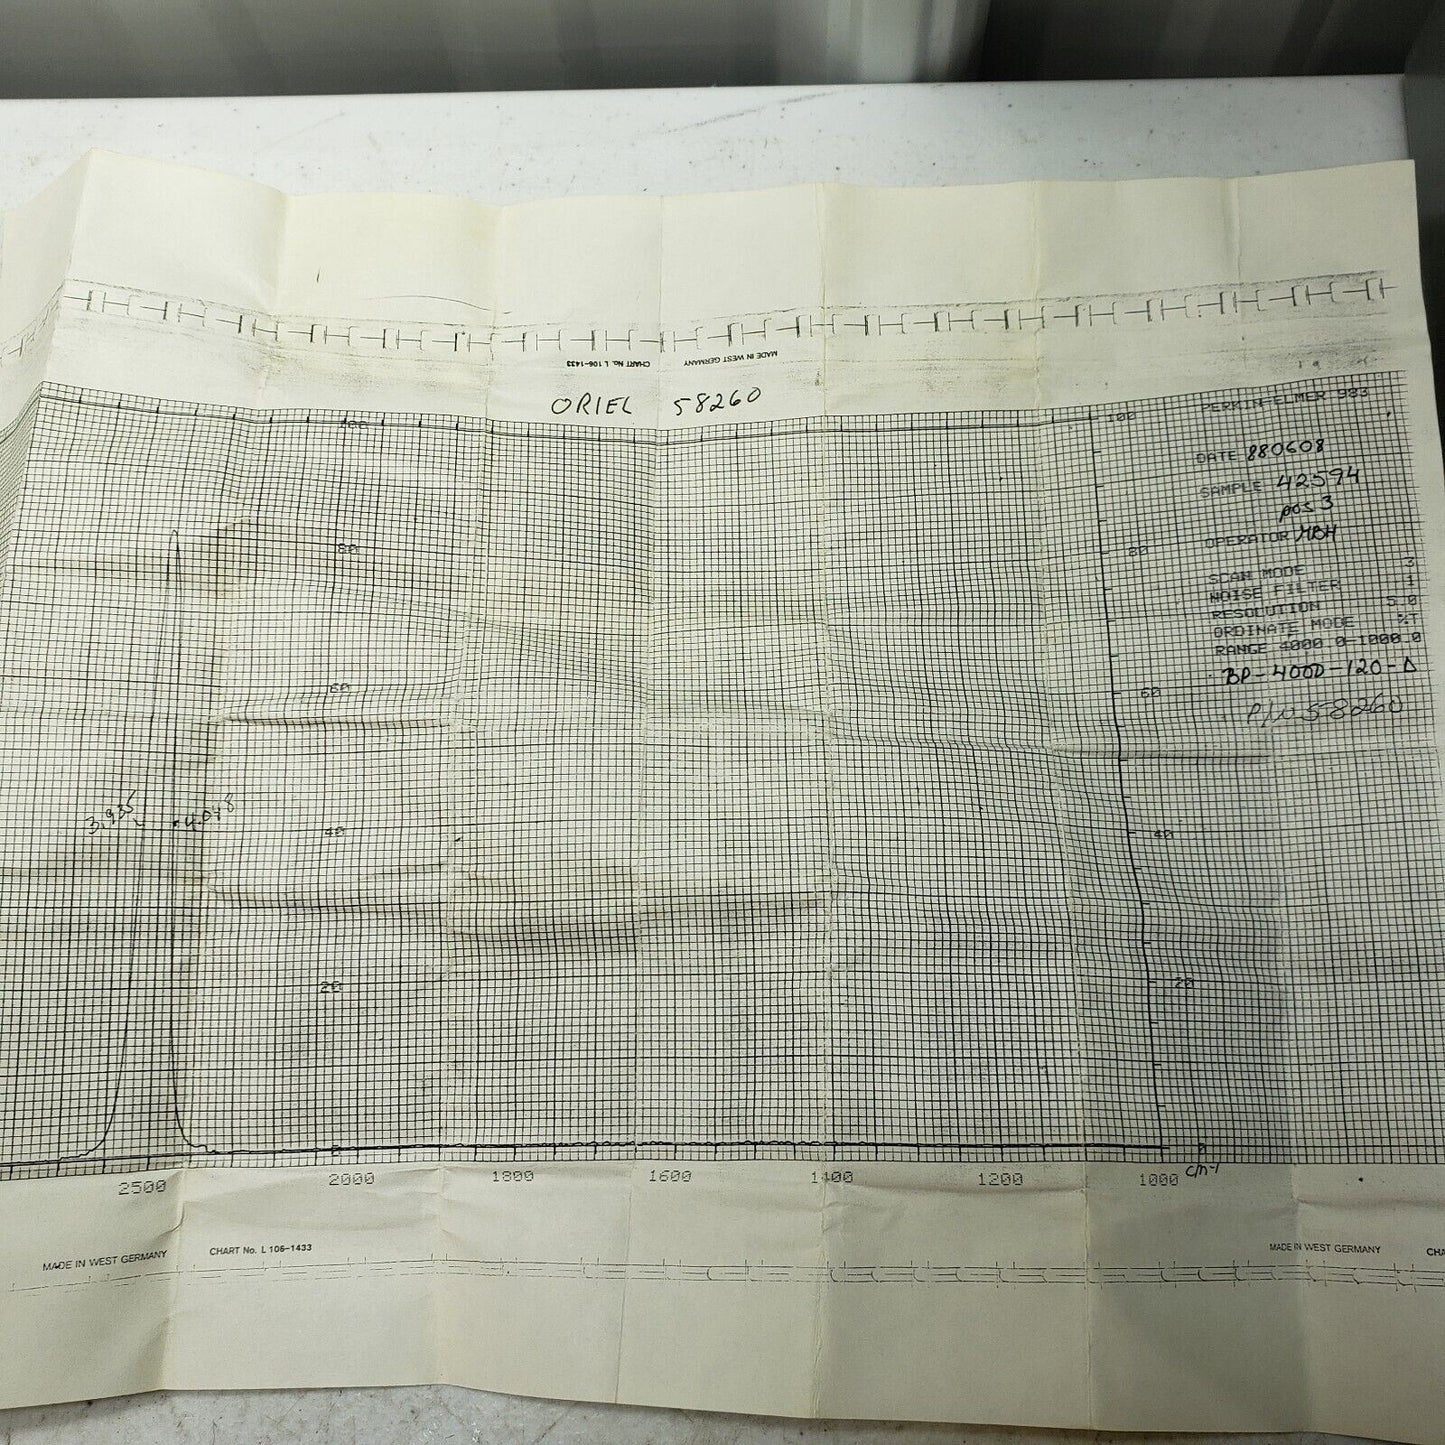 CHART No. L 106-1433 MADE IN WEST GERMANY
ORIEL 58260
100
100
PERKIN-ELMER 983
DATE 880608
SAMPLE 42594
pos 3
OPERATOR MBH
80
80
SCAN MODE 3
NOISE FILTER 1
RESOLUTION 5.0
ORDINATE MODE %T
RANGE 4000.0-1000.0
BP-4000-120-D
P/N 58260
60
60
3.935
4.048
40
40
20
20
0
0
2500 2000 1800 1600 1400 1200 1000 cm-1
MADE IN WEST GERMANY CHART No. L 106-1433 MADE IN WEST GERMANY CHA